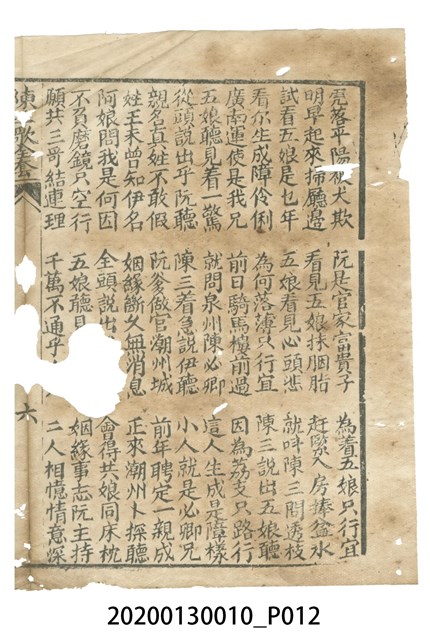 虎落平陽被犬欺 阮是官家富貴子 為着五娘只行宜
明早起來掃廳邊 看見五娘抹胭脂 赶緊入房捧盆水
試看五娘是乜年 五娘看見心頭悲 就呌陳三問透枝
看尔生成障伶俐 為何落薄只行宜 陳三說出五娘聽
廣南運使是我兄 前日騎馬樓前過 因為荔支只路行
五娘聽見着一驚 就問泉州陳必卿 這人生成是障樣
從頭說出乎阮聽 陳三着急說伊聽 小人就是必卿兄
親名真姓不敢假 阮爹做官潮州城 前年聘定一親成
姓王未曾知伊名 姻緣斷久無消息 正來潮州卜探聽
阿娘問我是何因 全頭說出 會得共娘同床枕
不負磨鏡只空行 五娘聽見 姻緣事志阮主持
願共三哥結連理 千萬不通乎 二人相憶情意深
陳 歌
六
20200130010_P012